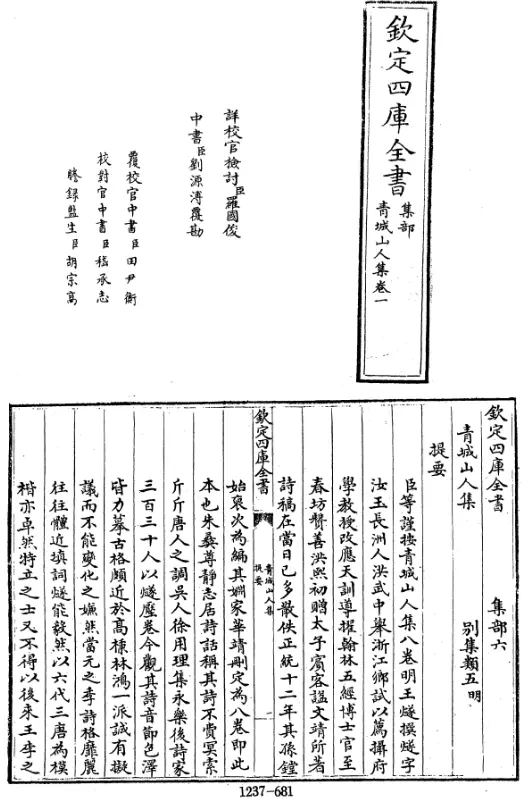 欽定四庫全書
集部
青城山人集卷一
詳校官檢討臣羅國俊
中書臣劉源溥覆勘
覆校官中書臣田尹衡
校對官中書臣嵇承志
謄錄監生臣胡宗高
欽定四庫全書 集部六
青城山人集 別集類五明
提要
臣等謹按青城山人集八卷明王燧撰燧字
汝玉長洲人洪武中舉浙江鄉試以薦攝府
學教授改應天訓導擢翰林五經博士官至
春坊贊善洪熙初贈太子賓客諡文靖所著
詩稿在當日已多散佚正統十二年其孫鏜
始裒次為編其婣家華靖刪定為八卷即此
本也朱彝尊靜志居詩話稱其詩不費冥索
斤斤唐人之調吳人徐用理集永樂後詩家
三百三十人以燧壓卷今觀其詩音節色澤
皆力摹古格頗近於高棅林鴻一派誠有擬
議而不能變化之嫌然當元之季詩格靡麗
往往體近填詞燧能毅然以六代三唐為模
楷亦卓然特立之士又不得以後來王李之
欽定四庫全書
青城山人集
提要
1237-681